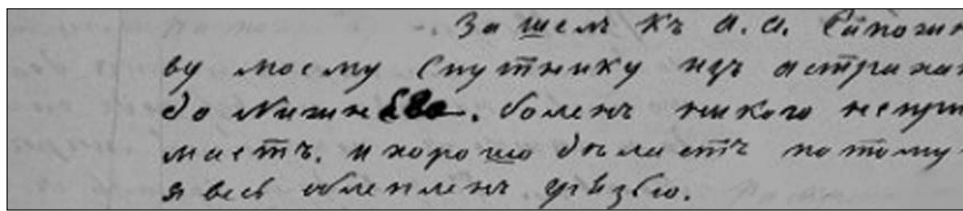 Зашелъ къ А.А. Сапожни
ву моему спутнику изъ астрахан
до Нижня. боленъ никого непри
маетъ. и хорошо дѣлаетъ потому
я весь облепленъ грѣзью.